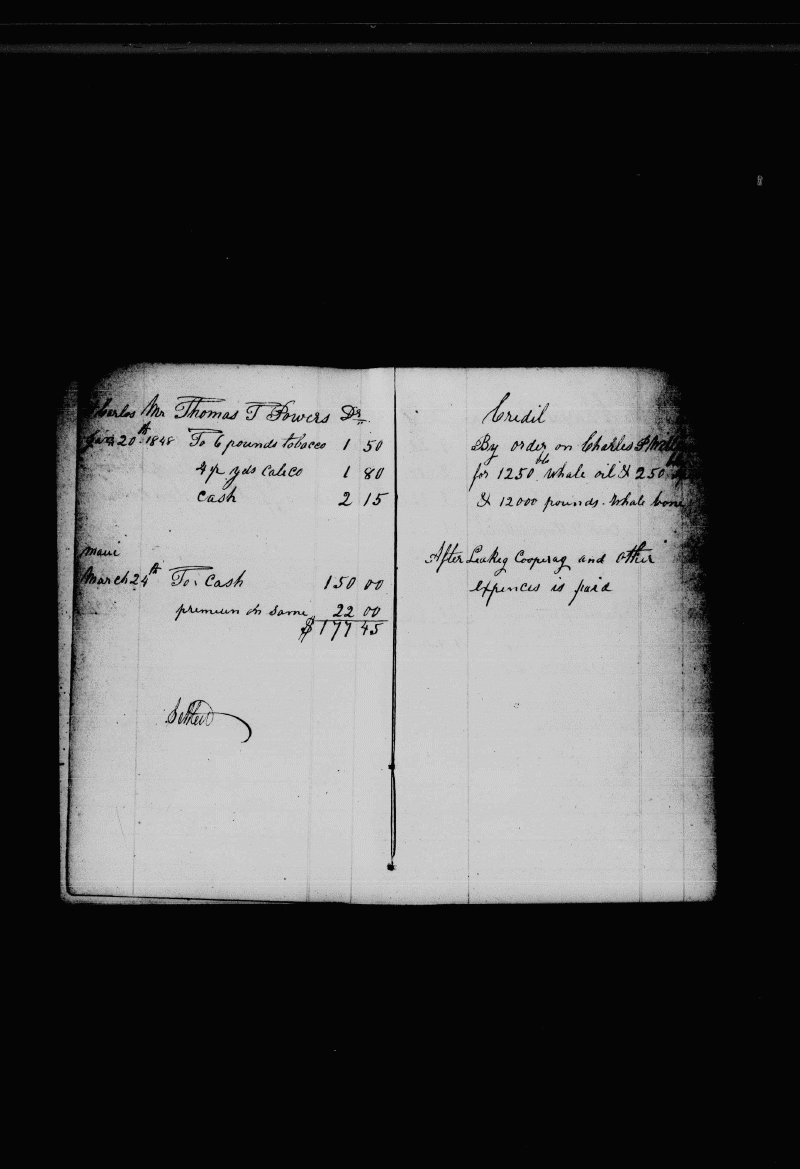 Charles Mr Thomas T Powers Dr.
Jan 20th 1848 To 6 pounds tobacco 1 50
4 yds Calico 1 80
Cash 2 15
maui
March 24th To Cash 150 00
premium on same 22 00
$177 45
Settled
Credit
By order on Charles P
for 1250 bbls whale oil & 250
& 12000 pounds Whale bone
After Leakeg Cooperag and other
expences is paid